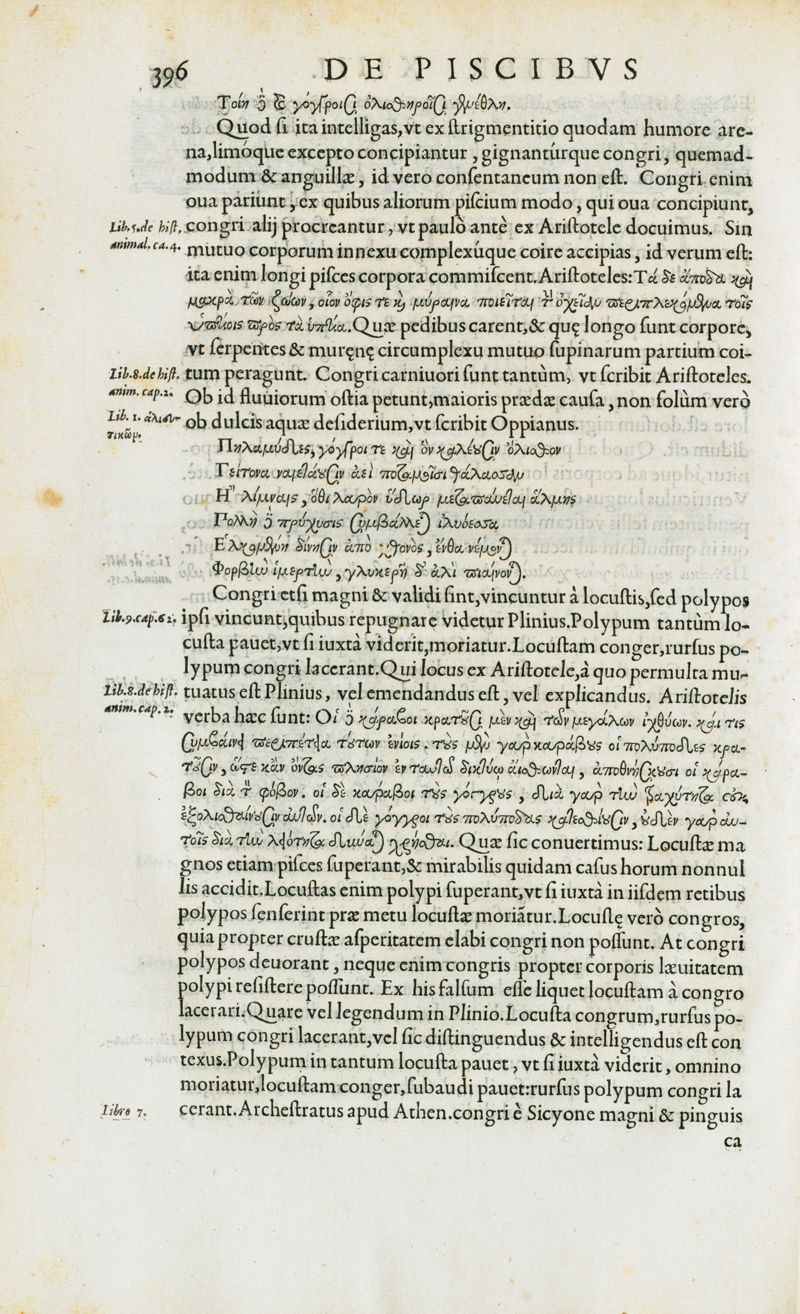 396 DE PISCIBVS
Τοίη δὲ καὶ γόγγροισι ὀλιοθηροῖσι γενέθλη.
Quod ſi ita intelligas, vt ex ſtrigmentitio quodam humore are-
na, limóque excepto concipiantur, gignantúrque congri, quemad-
modum & anguillæ, id vero conſentaneum non eſt. Congri enim
oua pariunt, ex quibus aliorum piſcium modo, qui oua concipiunt,
Lib. 5. de hiſt.
animal. ca. 4.
congri alij procreantur, vt paulò antè ex Ariſtotele docuimus. Sin
mutuo corporum innexu complexúque coire accipias, id verum eſt:
ita enim longi piſces corpora commiſcent. Ariſtoteles: Τὰ δὲ ἄποδα καὶ
μακρὰ τῶν ζώων, οἷον ὄφις τε καὶ μύραινα ποιεῖται τὴν ὀχείαν περιπλεκόμενα τοῖς
ὑπτίοις πρὸς τὰ ὕπτια. Quæ pedibus carent, & quę longo ſunt corpore,
vt ſerpentes & muręnę circumplexu mutuo ſupinarum partium coi-
Lib. 8. de hiſt.
anim. cap. 2.
tum peragunt. Congri carniuori ſunt tantùm, vt ſcribit Ariſtoteles.
Ob id fluuiorum oſtia petunt, maioris prædæ cauſa, non ſolùm verò
Lib. 1. ἁλιευ-
τικῶν.
ob dulcis aquæ deſiderium, vt ſcribit Oppianus.
Πηλαμύδες, γόγγροι τε καὶ ὃν καλέουσιν ὄλισθον
Γείτονα ναιετάουσιν ἀεὶ ποταμοῖσι θάλασσαν
Ἢ λίμναις, ὅθι λαρὸν ὕδωρ μεταπαύεται ἅλμης
Πολλὴ δὲ πρόχυσις συμβάλλεται ἰλυόεσσα
Ἑλκομένη δίνησιν ἀπὸ χθονὸς, ἔνθα νέμονται
Φορβὴν ἱμερτὴν, γλυκερῇ δ' ἁλὶ πιαίνονται.
Congri etſi magni & validi ſint, vincuntur à locuſtis, ſed polypos
Lib. 9. cap. 62.
ipſi vincunt, quibus repugnare videtur Plinius. Polypum tantùm lo-
cuſta pauet, vt ſi iuxtà viderit, moriatur. Locuſtam conger, rurſus po-
lypum congri lacerant. Qui locus ex Ariſtotele, à quo permulta mu-
Lib. 8. de hiſt.
anim. cap. 2.
tuatus eſt Plinius, vel emendandus eſt, vel explicandus. Ariſtotelis
verba hæc ſunt: Οἱ δὲ κάραβοι κρατοῦσι μὲν καὶ τῶν μεγάλων ἰχθύων. καί τις
συμβαίνει περιπέτεια τούτων ἐνίοις. τοὺς μὲν γὰρ καράβους οἱ πολύποδες κρα-
τοῦσιν, ὥστε κἂν ὄντας πλησίον ἐν ταυτῷ δικτύῳ αἴσθωνται, ἀποθνήσκουσι οἱ κάρα-
βοι διὰ τὸν φόβον. οἱ δὲ κάραβοι τοὺς γόγγρους, διὰ γὰρ τὴν τραχύτητα οὐκ
ἐξολισθαίνουσιν αὐτῶν. οἱ δὲ γόγγροι τοὺς πολύποδας κατεσθίουσιν, οὐδὲν γὰρ αὐ-
τοῖς διὰ τὴν λειότητα δύνανται χρῆσθαι. Quæ ſic conuertimus: Locuſtæ ma
gnos etiam piſces ſuperant, & mirabilis quidam caſus horum nonnul
lis accidit. Locuſtas enim polypi ſuperant, vt ſi iuxtà in iiſdem retibus
polypos ſenſerint præ metu locuſtæ moriãtur. Locuſtę verò congros,
quia propter cruſtæ aſperitatem elabi congri non poſſunt. At congri
polypos deuorant, neque enim congris propter corporis læuitatem
polypi reſiſtere poſſunt. Ex his falſum eſſe liquet locuſtam à congro
lacerari. Quare vel legendum in Plinio. Locuſta congrum, rurſus po-
lypum congri lacerant, vel ſic diſtinguendus & intelligendus eſt con
textus. Polypum in tantum locuſta pauet, vt ſi iuxtà viderit, omnino
moriatur, locuſtam conger, ſubaudi pauet: rurſus polypum congri la
Libro 7.
cerant. Archeſtratus apud Athen. congri è Sicyone magni & pinguis
ca